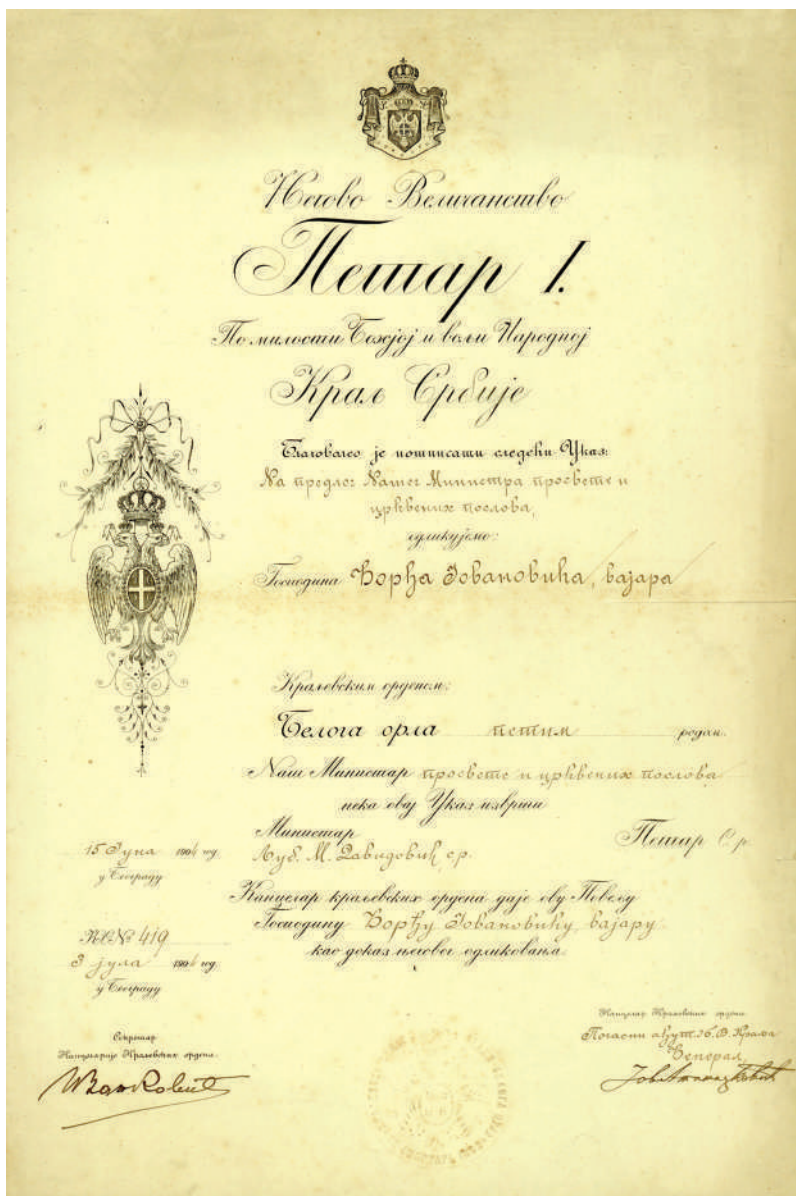 Његово Величанство
Петар I.
По милости Божјој и вољи Народној
Краљ Србије
Благоволео је потписати следећи Указ:
На предлог Нашег Министра просвете и
црквених послова,
одликујемо:
Господина Ђорђа Јовановића, вајара
Краљевским орденом:
Белога орла петим редом.
Наш Министар просвете и црквених послова
нека овај Указ изврши
Министар
Петар С. р.
15 Јуна 1904 год.
Љуб. М. Давидовић с.р.
у Београду
Канцелар краљевских ордена даје ову Повељу
Господину Ђорђу Јовановићу, вајару
као доказ његовог одликовања.
№ 419
3 јула 1904 год.
у Београду
Канцелар Краљевских ордена
Почасни ађут. Њ. В. Краља
Ђенерал,
Секретар
Канцеларије Краљевских ордена